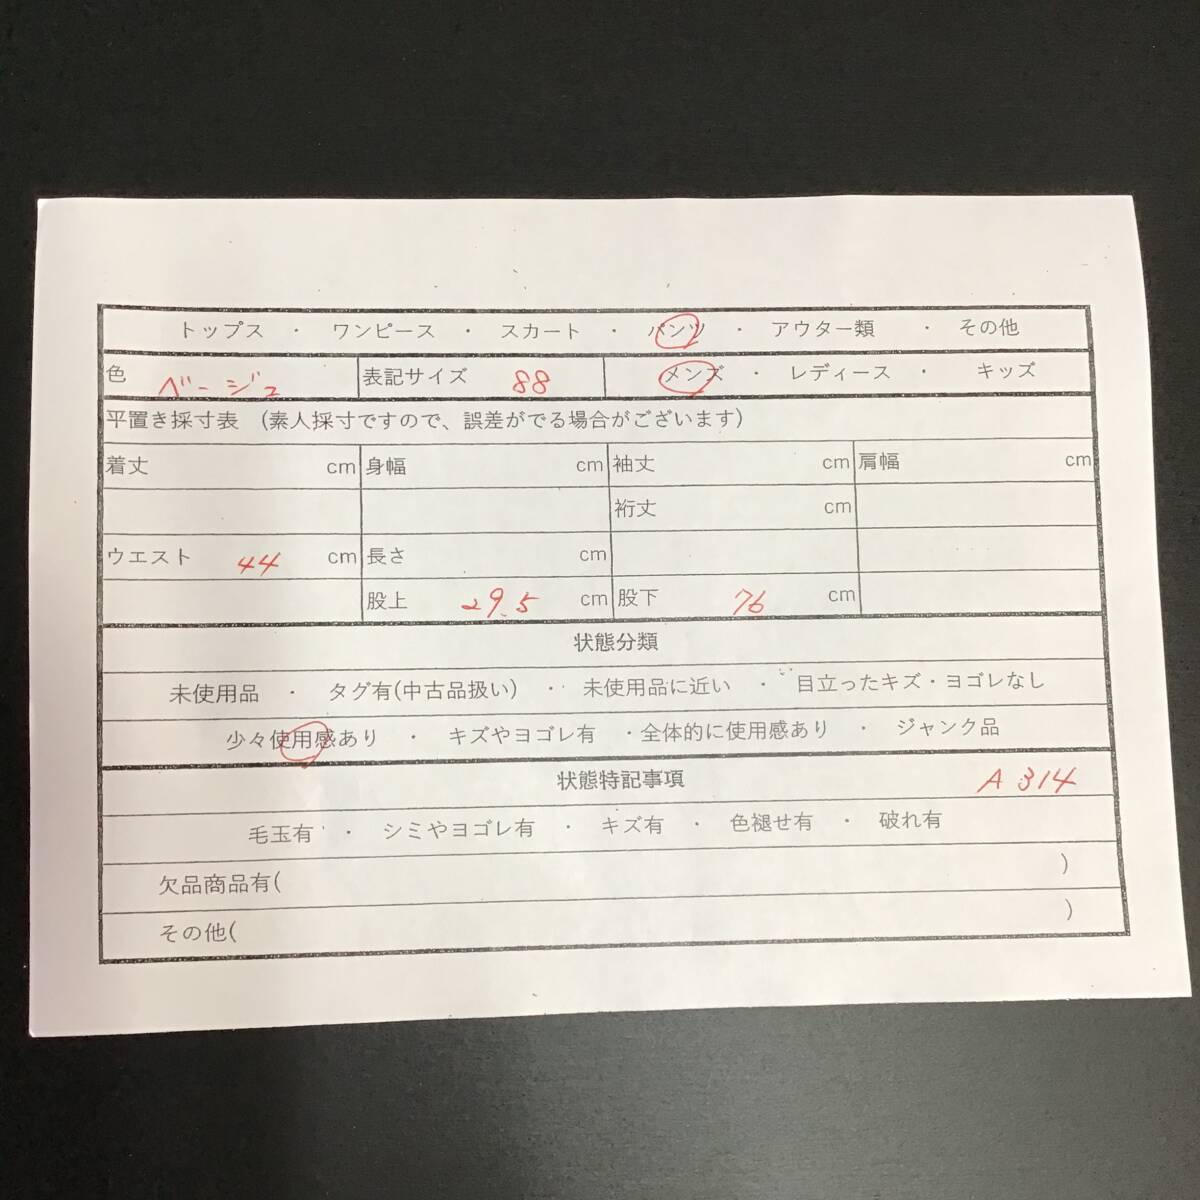 トップス ・ ワンピース ・ スカート ・ パンツ ・ アウター類 ・ その他
色 ベージュ 表記サイズ 88 メンズ ・ レディース ・ キッズ
平置き採寸表 (素人採寸ですので、誤差がでる場合がございます)
着丈 cm 身幅 cm 袖丈 cm 肩幅 cm
裄丈 cm
ウエスト 44 cm 長さ cm
股上 29.5 cm 股下 76 cm
状態分類
未使用品 ・ タグ有(中古品扱い) ・ 未使用品に近い ・ 目立ったキズ・ヨゴレなし
少々使用感あり ・ キズやヨゴレ有 ・全体的に使用感あり ・ ジャンク品
状態特記事項 A 314
毛玉有 ・ シミやヨゴレ有 ・ キズ有 ・ 色褪せ有 ・ 破れ有
欠品商品有( )
その他( )